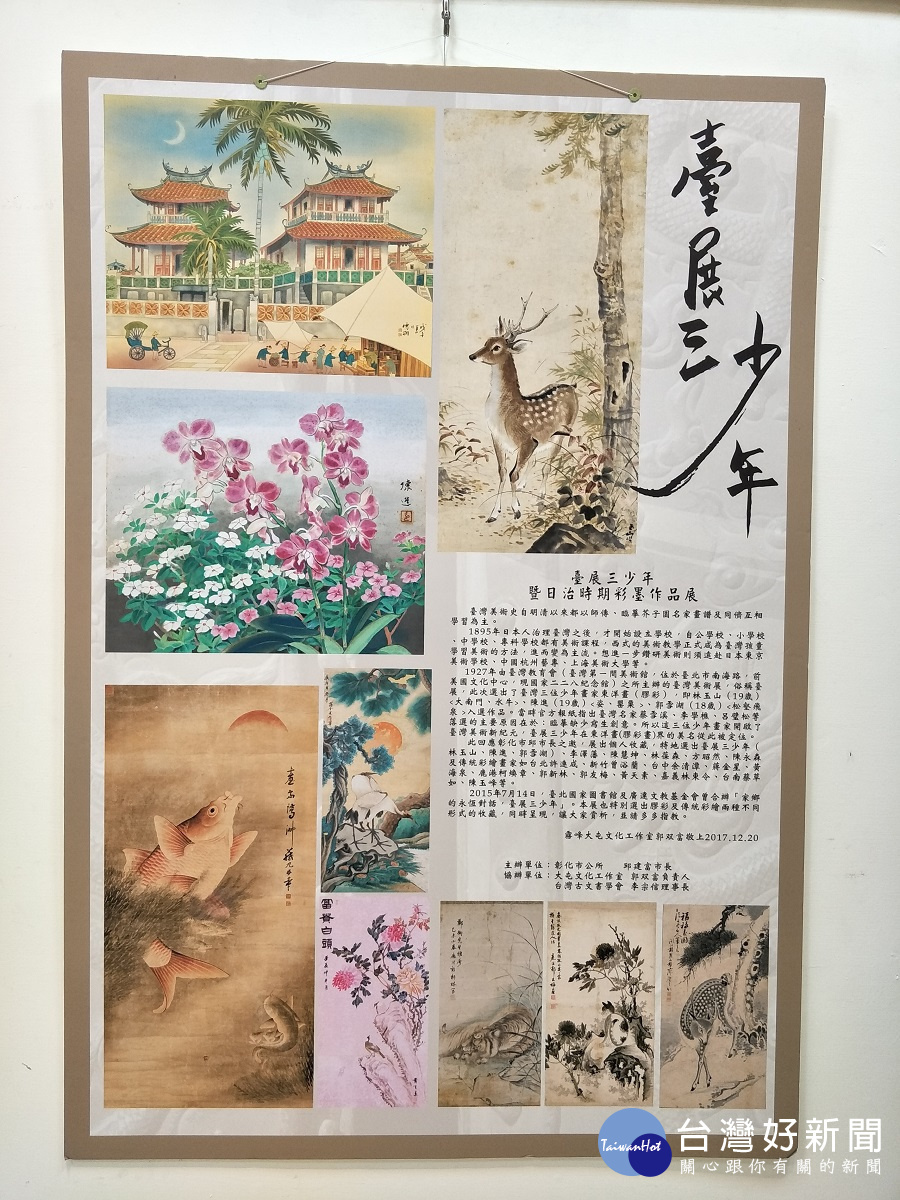 臺展三少年
臺展三少年
暨日治時期彩墨作品展
臺灣美術史自明清以來都以師傳、臨摹芥子園名家畫譜及同儕互相
學習為主。
1895年日本人治理臺灣之後，才開始設立學校，自公學校、小學校
、中學校、專科學校都有美術課程，西式的美術教學正式成為臺灣孩童
學習美術的方法，進而變為主流。想進一步鑽研美術則須遠赴日本東京
美術學校、中國杭州藝專、上海美術大學等。
1927年由臺灣教育會（臺灣第一間美術館，位於臺北市南海路，前
美國文化中心，現國家二二八紀念館）之所主辦的臺灣美術展，俗稱臺
展，此次選出了臺灣三位少年畫家東洋畫（膠彩），即林玉山（19歲）
<大南門、水牛>、陳進（19歲）<姿、罌粟>、郭雪湖（18歲）<松壑飛
泉>入選作品。當時官方報紙指出臺灣名家蔡雪溪、李學樵、呂璧松等
落選的主要原因在於：臨摹缺少寫生創意。所以這三位少年畫家開啟了
臺灣美術新紀元，臺展三少年在東洋畫(膠彩畫)界的美名從此被定位。
此回應彰化市邱市長之邀，展出個人收藏，特地選出臺展三少年（
林玉山、陳進、郭雪湖）、李澤藩、陳慧坤、林葆森、方昭然、陳永森
及傳統彩繪畫家如台北許進成、新竹曾浴蘭、台中余清潭、蔣金星、黃
海泉、鹿港柯煥章、北郭新林、郭友梅、黃天素、嘉義林東令、台南蔡草
如、陳玉峰等。
2015年7月14日，臺北國家圖書館及廣達文教基金會曾合辦「家鄉
的永恆對話，臺展三少年」。本展也特別選出膠彩及傳統彩繪兩種不同
形式的收藏，同時呈現，讓大家賞析，並請多多指教。
霧峰大屯文化工作室郭双富敬上2017.12.20
主辦單位：彰化市公所 邱建富市長
協辦單位：大屯文化工作室 郭双富負責人
台灣古文書學會 李宗信理事長
陳進
富貴白頭
TaiwanHot
台灣好新聞
關心跟你有關的新聞